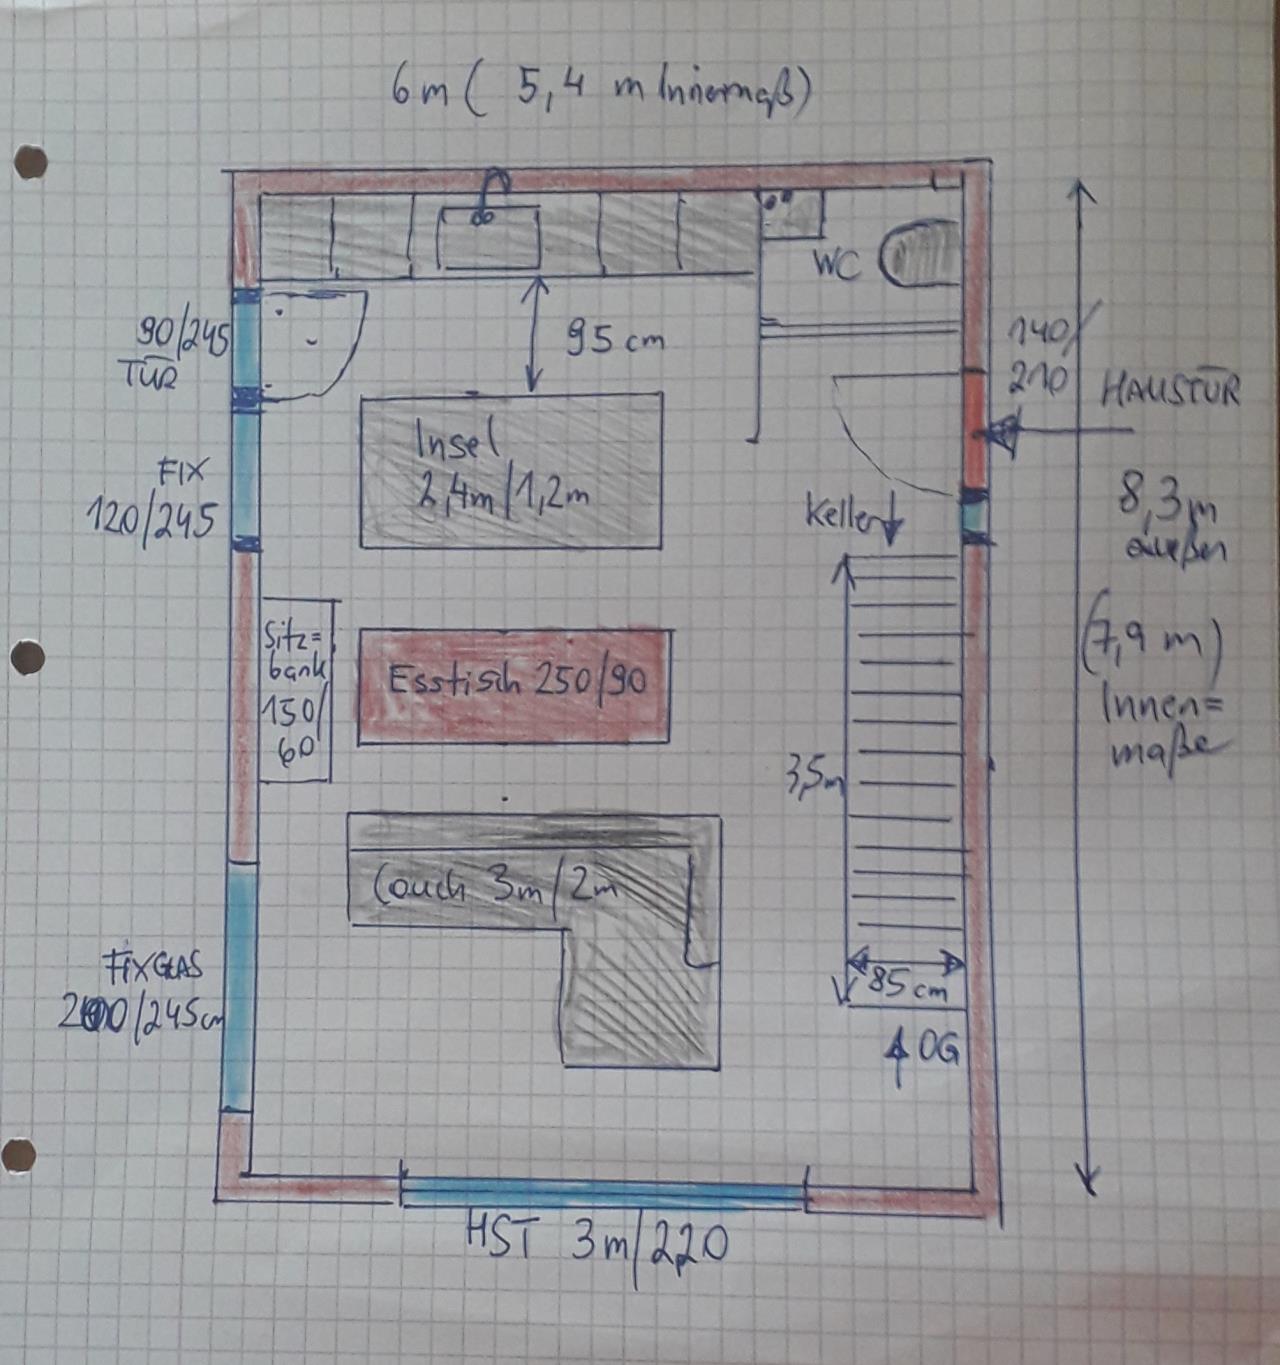 6m ( 5,4 m Innenmaß)
WC
90/245
TÜR
95 cm
140/
210
HAUSTÜR
FIX
120/245
Insel
2,4m/1,2m
Keller
8,3m
außen
(7,9 m)
Innen=
maße
Sitz=
bank
150/
60
Esstisch 250/90
3,5m
Couch 3m/2m
FIXGLAS
200/245cm
85 cm
OG
HST 3m/220